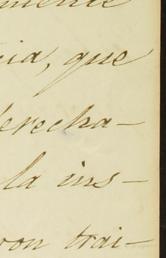 mente
cia, que
derecha-
la ins-
von trai-